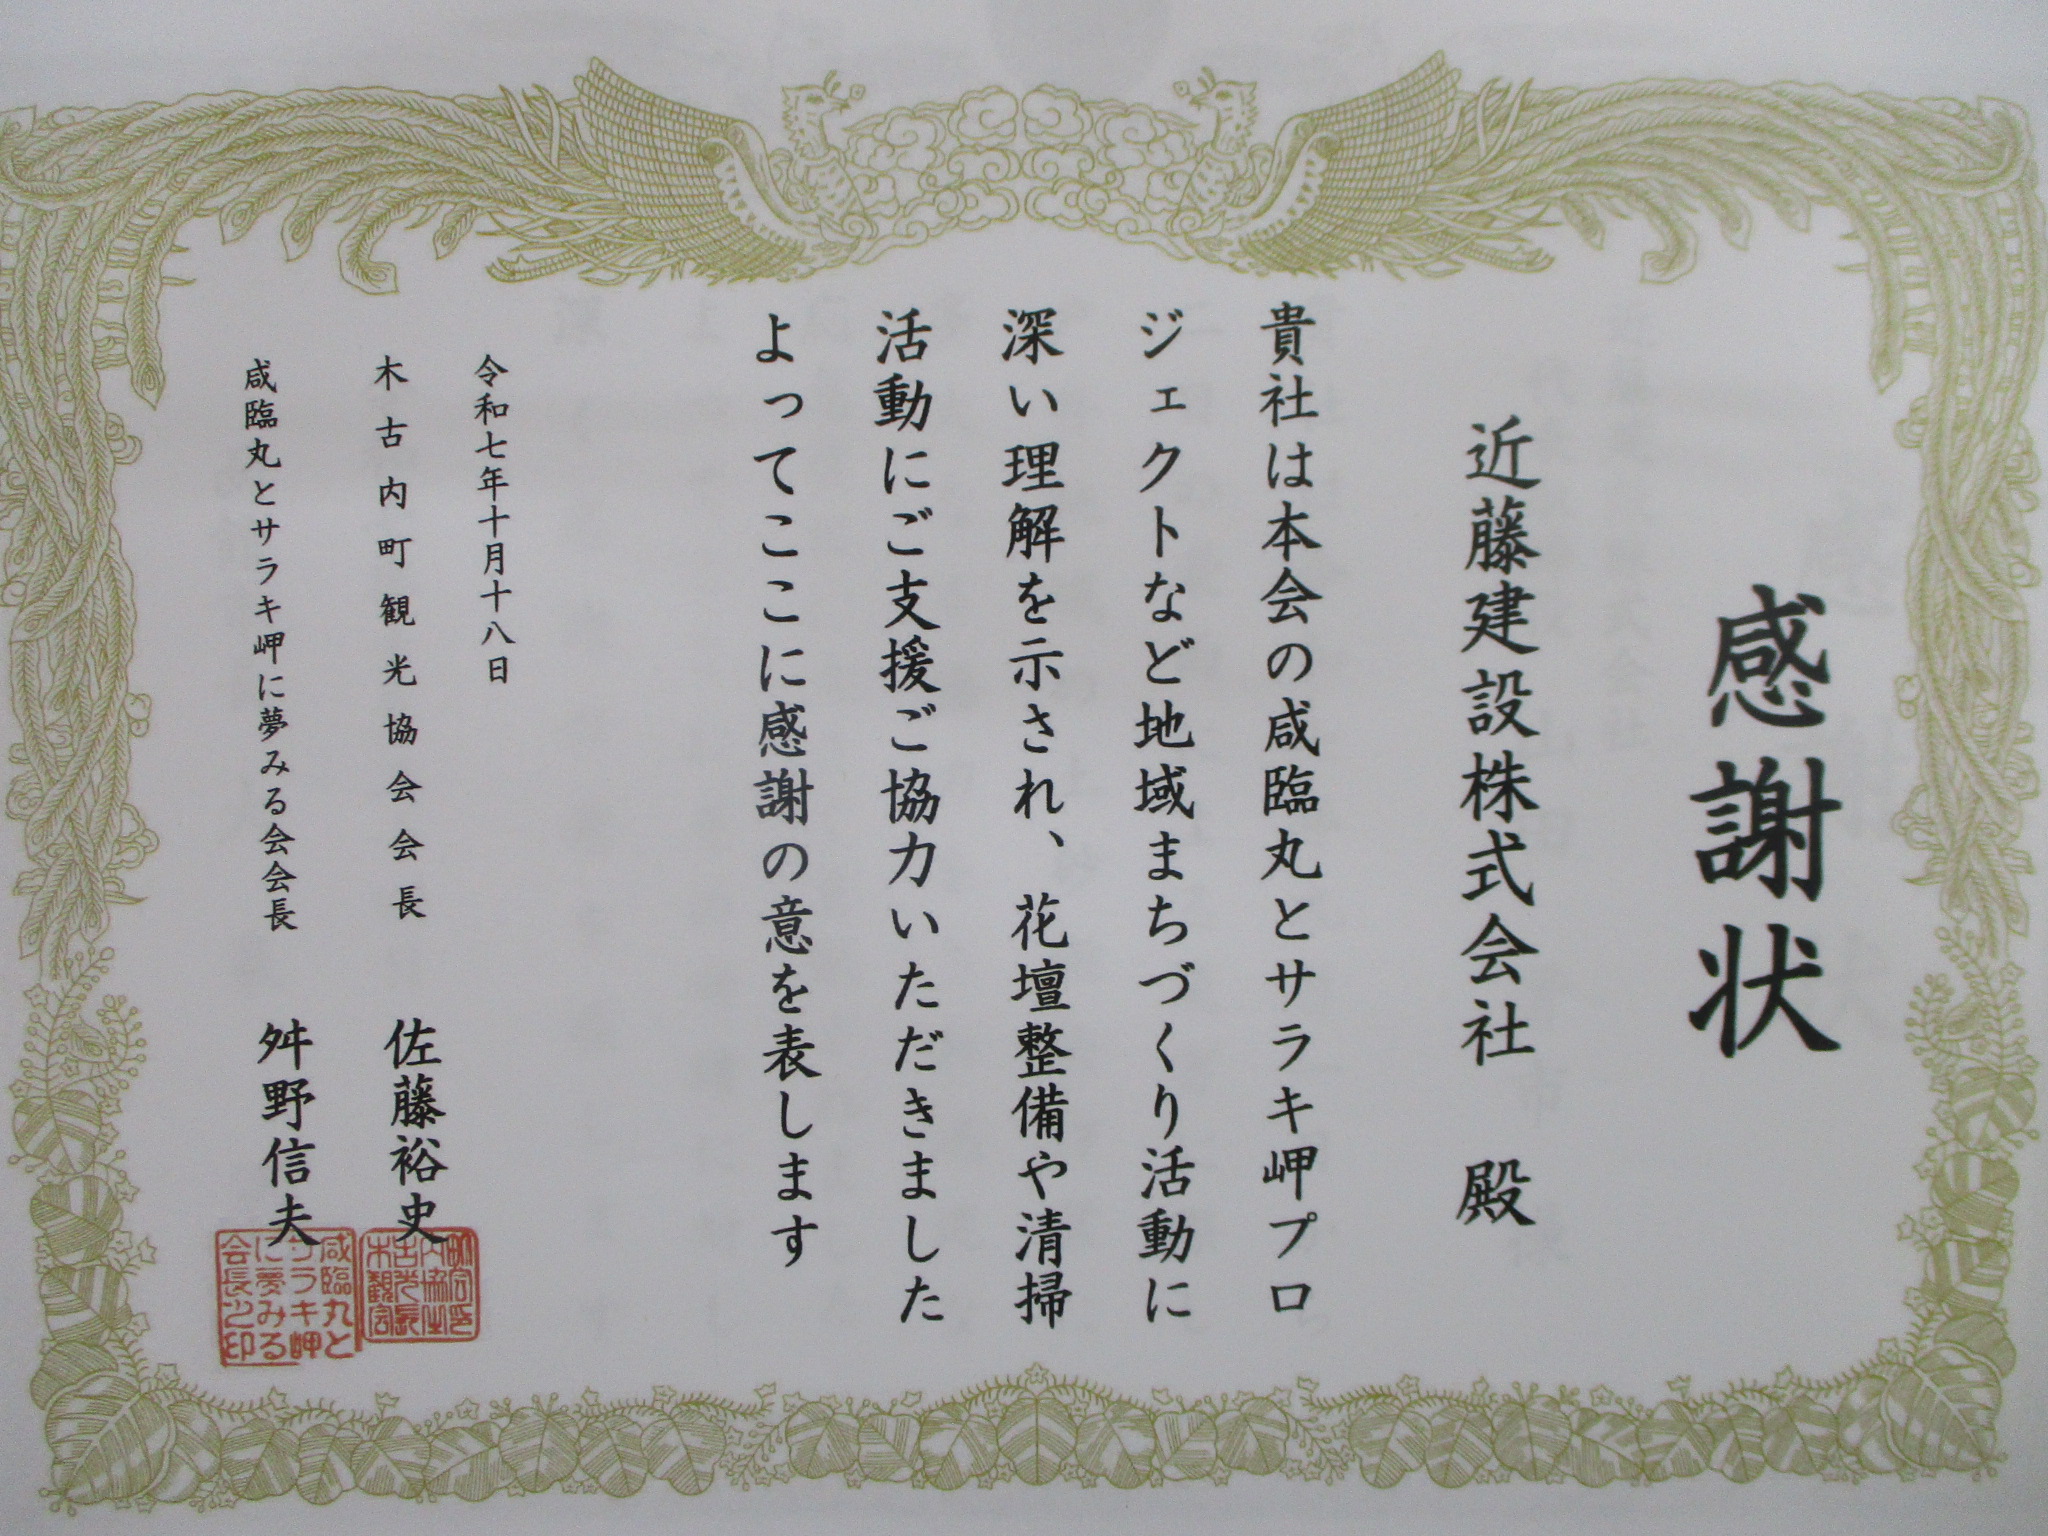 感謝状
近藤建設株式会社 殿
貴社は本会の咸臨丸とサラキ岬プロ
ジェクトなど地域まちづくり活動に
深い理解を示され、花壇整備や清掃
活動にご支援ご協力いただきました
よってここに感謝の意を表します
令和七年十月十八日
木古内町観光協会会長 佐藤裕史
咸臨丸とサラキ岬に夢みる会会長 舛野信夫
咸臨丸と
サラキ岬
に夢みる
会長之印